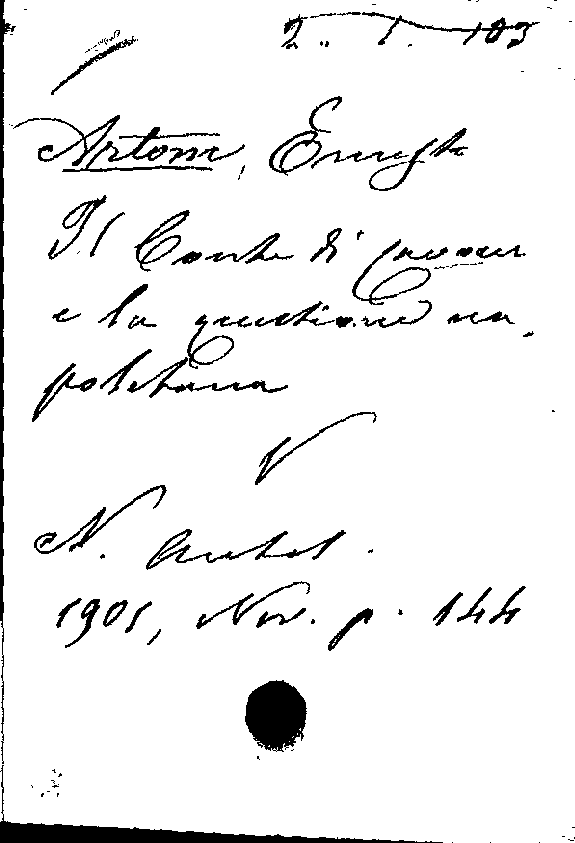 2. 1. 103
Artom, Ernesto
Il Conte di Cavour
e la questione na-
poletana
V
N. Antol.
1901, Nov. p. 144